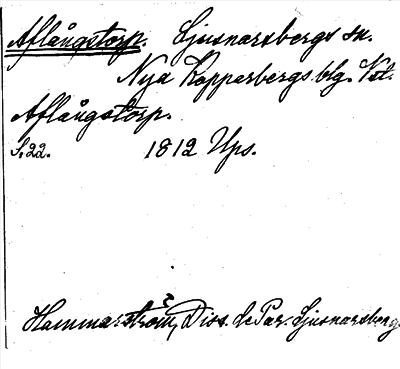 Aflångstorp. Ljusnarsbergs sn.
Nya Kopparbergs blg. Vstl.
Aflångstorp.
S. 22. 1812 Ups.
Hammarström, Diss. de Par. Ljusnarsberg